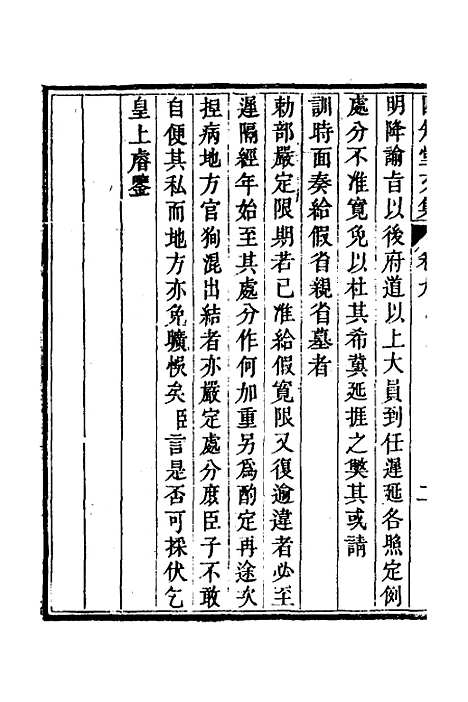 明降諭旨以後府道以上大員到任遲延各照定例
處分不准寬免以杜其希冀延捱之獘其或請
訓時面奏給假省親省墓者
勅部嚴定限期若已准給假寬限又復逾違者必至
遲隔經年始至其處分作何加重另爲酌定再途次
捏病地方官狥混出結者亦嚴定處分庶臣子不敢
自便其私而地方亦免曠悞矣臣言是否可採伏乞
皇上睿鑒